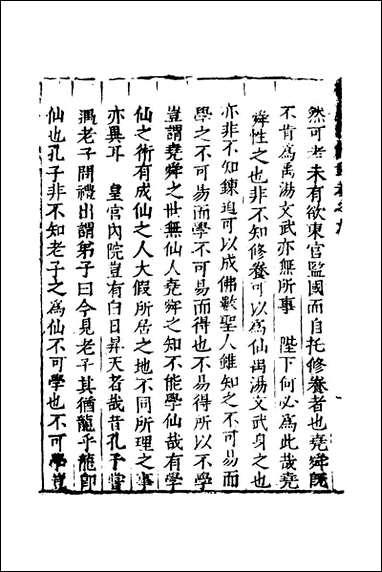 然可考未有欲東宮監國而自托修養者也堯舜既
不肯爲禹湯文武亦無所事　陛下何必爲此哉堯
舜性之也非不知修養可以爲仙禹湯文武身之也
亦非不知鍊追可以成佛數聖人雖知之不可易而
學之不可易而學不可易而得也不易得所以不學
豈謂堯舜之世無仙人堯舜之知不能學仙哉有學
仙之術有成仙之人大假所居之地不同所理之事
亦異耳　皇宮內院豈有白日昇天者哉昔孔子嘗
問老子問禮出謂弟子曰今見老子其猶龍乎龍卽
仙也孔子非不知老子之爲仙不可學也不可學豈